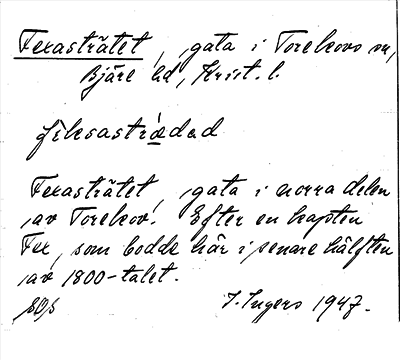 Fexasträtet, gata i Torekovs sn,
Bjäre hd, Krist. l.
fĕksastrǽdəd
Fexasträtet, gata i norra delen
av Torekov. Efter en kapten
Fex, som bodde här i senare hälften
av 1800-talet.
I. Ingers 1947.